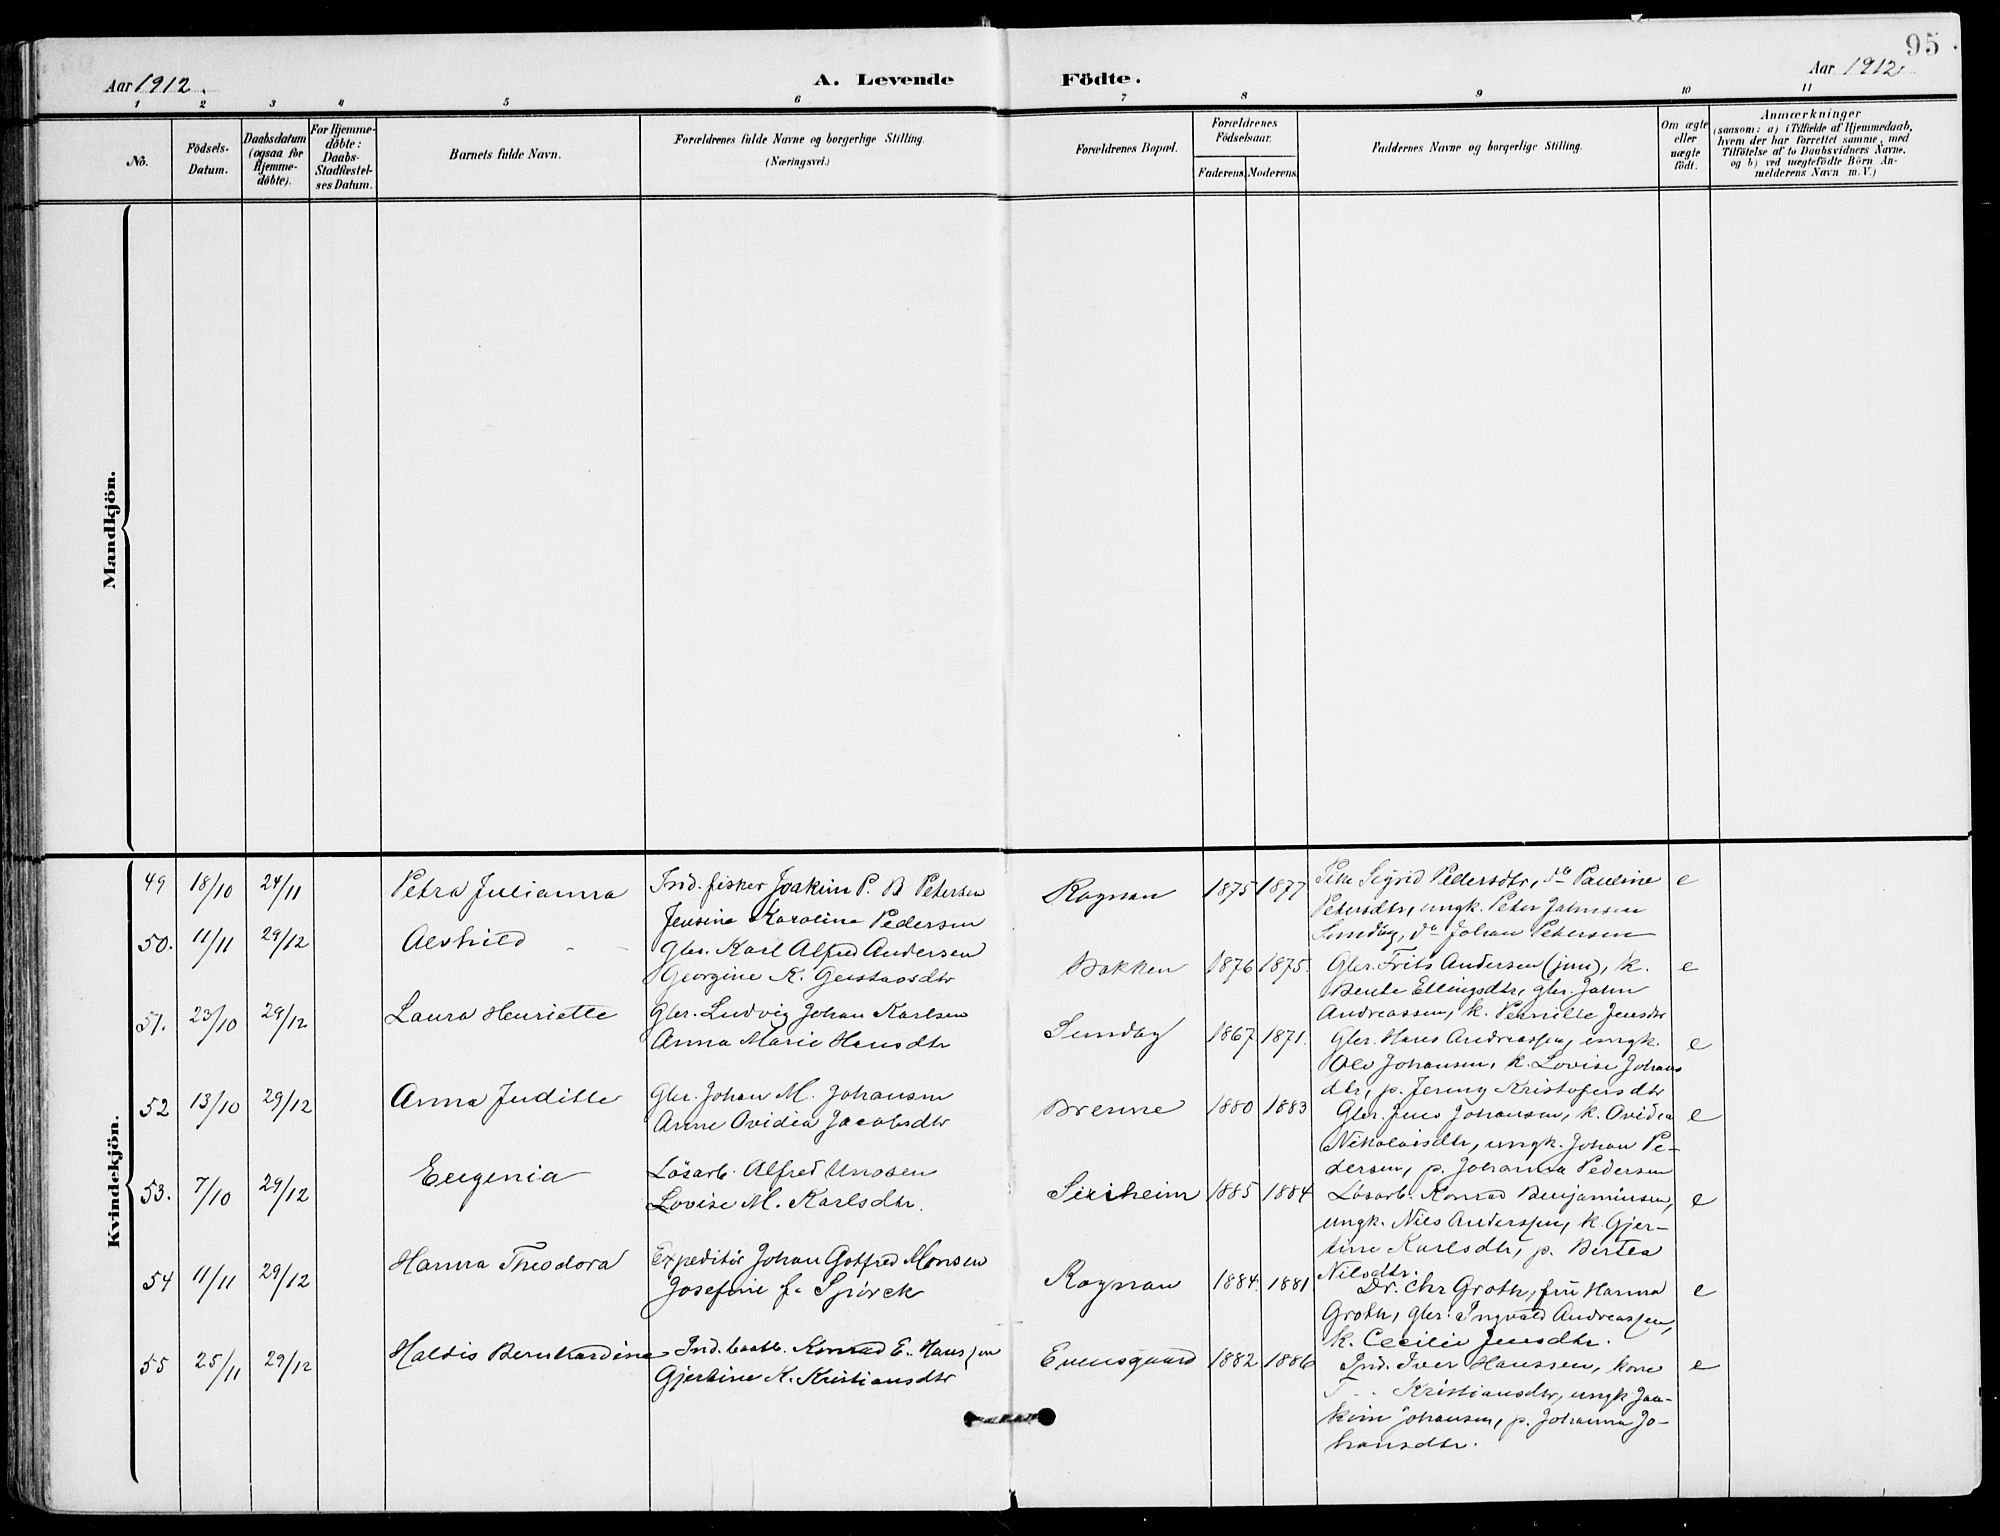 95
Aar 1912.
A. Levende Födte.
Aar 1912
1 2 3 4 5 6 7 8 9 10 11
No.
Födsels-Datum.
Daabsdatum (ogsaa for Hjemme-döbte).
For Hjemme-döbte: Daabs-Stadfæstel-ses Datum.
Barnets fulde Navn.
Forældrenes fulde Navne og borgerlige Stilling.
(Næringsvei.)
Forældrenes Bopæl.
Forældrenes Födselsaar.
Faderens. Moderens.
Faddernes Navne og borgerlige Stilling.
Om ægte eller uægte födt.
Anmærkninger
(saasom: a) i Tilfælde af Hjemmedaab,
hvem der har forrettet samme, med
Tilföielse af to Daabsvidners Navne,
og b) ved uægtefödte Börn An-
melderens Navn m. V.)
Mandkjön.
Kvindekjön.
49 18/10 24/11 Petra Julianna Ind. fisker Joakim P. B Petersen
Jensine Karoline Pedersen
Rognan 1875 1877 Sigrid Pedersdtr, do Pauline
Petersdtr, ungk. Peter Jahnsen
Sundby, do Johan Petersen
e
50. 11/11 29/12 Alvhild Gbr. Karl Alfred Andersen
Georgine K. Gustavsdtr
Bakken 1876 1875. Gbr. Frits Andersen (jun), k.
Bente Ellingsdtr, gbr. Jahn
Andreassen, k. Pernille Jensdtr
e
51. 23/10 29/12 Laura Henriette Gbr. Ludvig Johan Karlsen
Anna Marie Hansdtr
Sundby 1867 1871. Gbr. Hans Andreassen, ungk.
Ole Johansen, k. Lovise Johans
dtr, p. Jenny Kristofersdtr
e
52 13/10 29/12 Anna Judithe Gbr. Johan M. Johansen
Anne Ovidia Jacobsdtr
Brenne 1880 1883 Gbr. Jens Johansen, k. Ovidia
Nikolaisdtr, ungk. Johan Pe-
dersen, p. Johanna Pedersen
e
53. 7/10 29/12 Eugenia Lösarb. Alfred Unosen
Lovise M. Karlsdtr.
1885 1884 Lösarb. Konrad Benjaminsen,
ungk. Nils Anderssen, k. Gjer-
tine Karlsdtr, p. Bertea
Nilsdtr.
e
54 11/11 29/12 Hanna Theodora Expeditör Johan Gotfred Monsen
Josefine f. Spörck
Rognan 1884. 1881. Dr. Chr Groth, fru Hanna
Groth, gbr. Ingvald Andreassen,
k. Cecilie Jensdtr.
e
55 25/11 29/12 Haldis Bernhardine Ind. Konrad E. Hanssen
Gjertine K. Kristiansdtr
Evensgaard 1882 1886 Ind. Iver Hanssen, kone
Kristiansdtr, ungk Joa-
kim Johansen, p. Johanna Jo-
hansdtr.
e